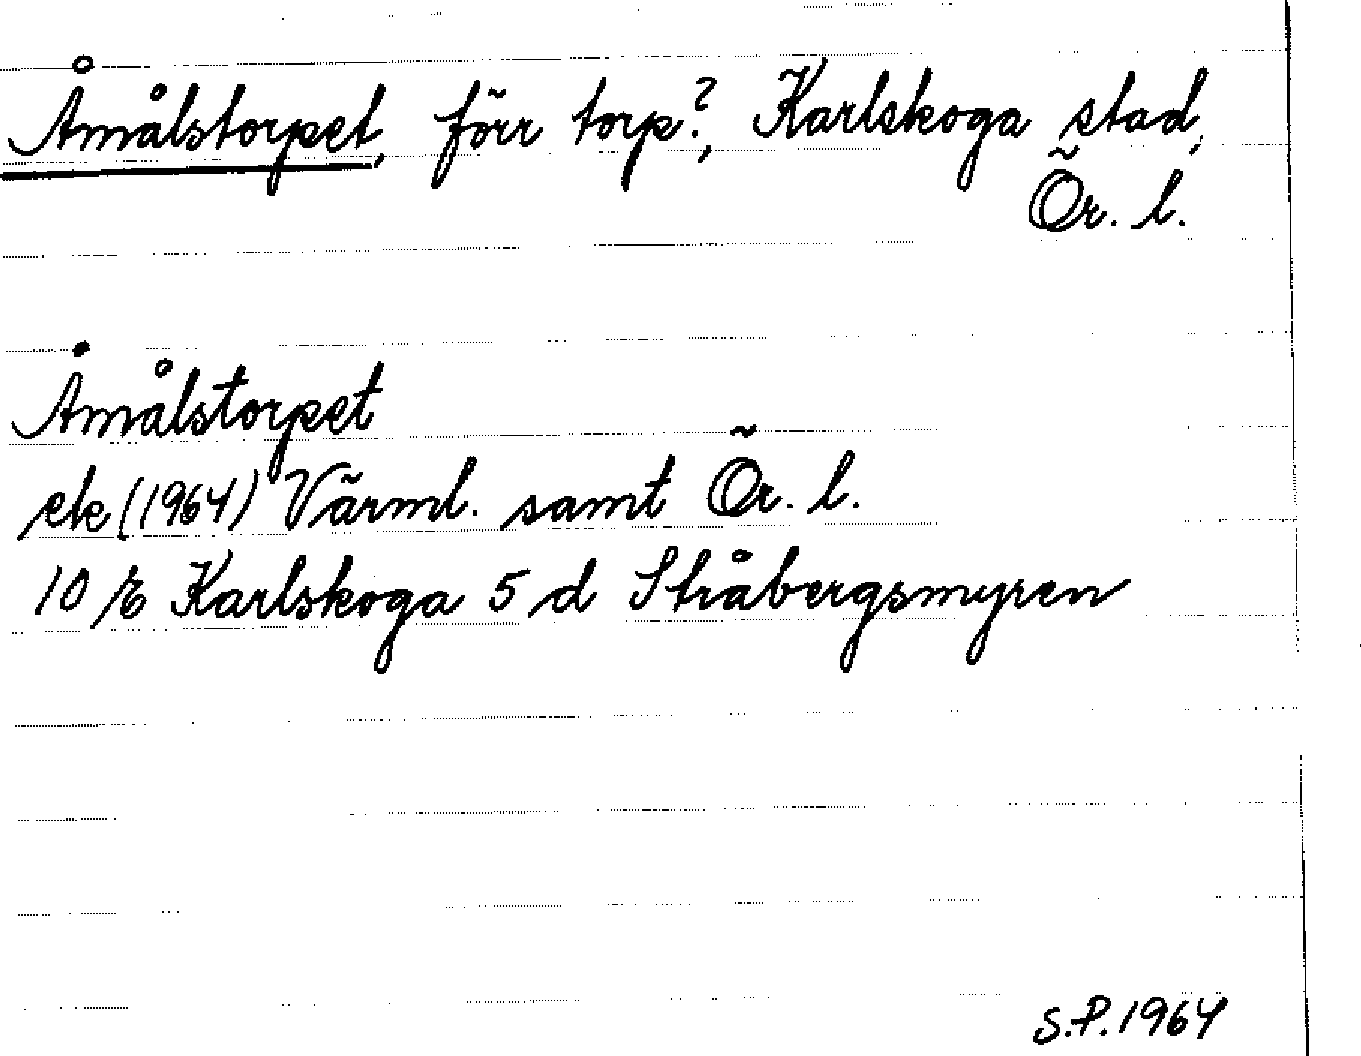 Åmålstorpet, förr torp?, Karlskoga stad,
Ör. l.
Åmålstorpet
ek (1964) Värml. samt Ör. l.
10 E Karlskoga 5 d Stråbergsmyren
S.P. 1964